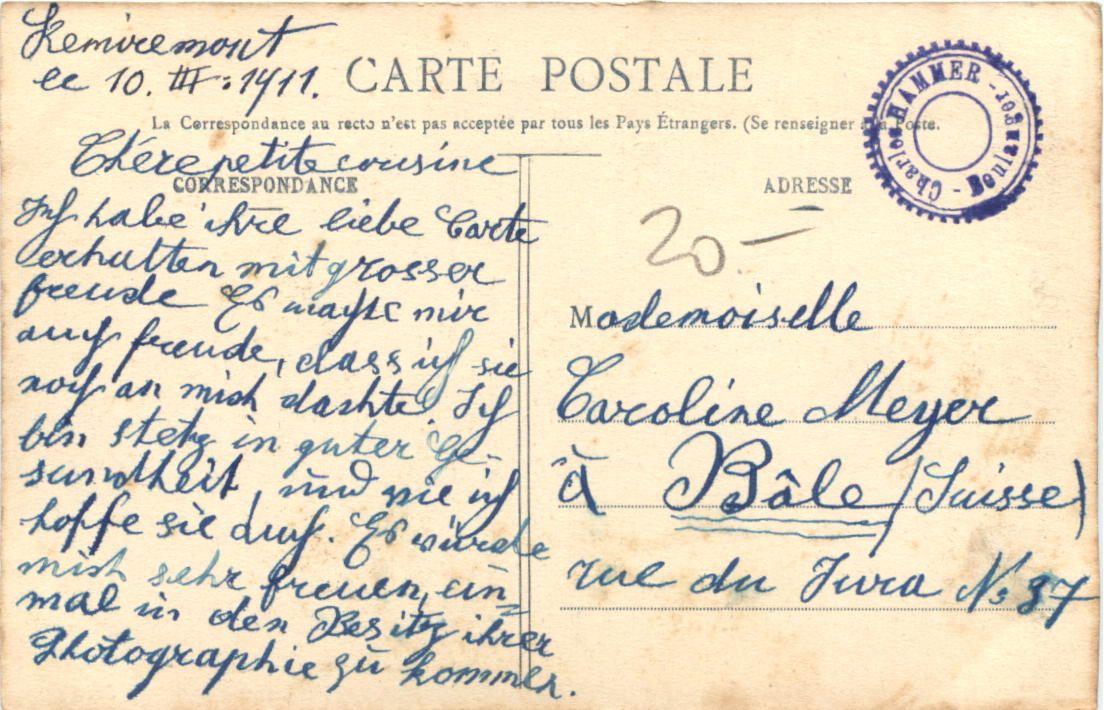 Remiremont
le 10. III. 1911.
CARTE POSTALE
La Correspondance au recto n'est pas acceptée par tous les Pays Étrangers. (Se renseigner à la Poste.
CORRESPONDANCE
Chére petite cousine
Ich habe ihre liebe Carte
erhalten mit grosser
freude Es machte mir
auch freude, dass ich sie
noch an mich dachte Ich
bin stetz in guter Ge-
sundheit, und wie ich
hoffe sie auch. Es würde
mich sehr freuen, ein=
mal in den Besitz ihrer
Photographie zu kommen.
ADRESSE
20.-
Mademoiselle
Caroline Meyer
à Bâle (Suisse)
rue du Jura No 37
Charles HAMMER